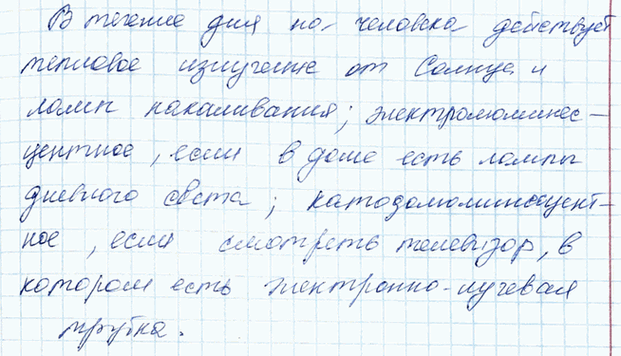 В течение дня на человека действует
тепловое излучение от Солнца и
ламп накаливания; электролюминес-
центное, если в доме есть лампы
дневного света; катодолюминесцент-
ное, если смотреть телевизор, в
котором есть электронно-лучевая
трубка.